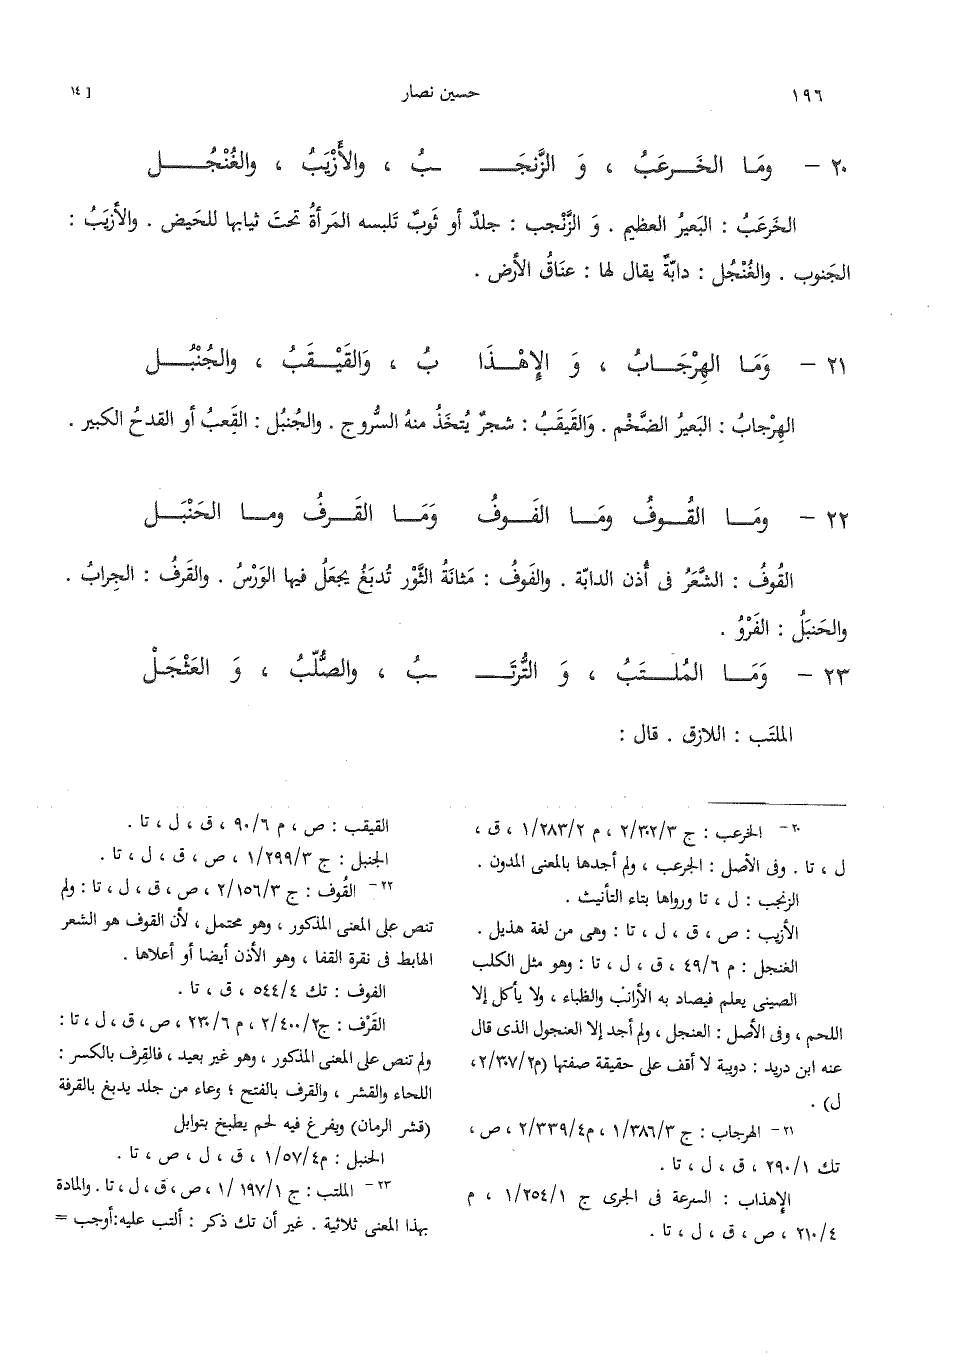 ١٩٦
حسين نصار
[ ١٤
٢٠ – ومَا الخَـرعَبُ ، وَ الزَّنجَـــبُ ، والأَزْيَبُ ، والغُنْجُـــل
الخَرعَبُ : البَعيرُ العظيم . وَ الزَّنْجب : جلدٌ أو ثَوبٌ تَلبسه المَرأةُ تحتَ ثيابها للحَيض . والأزيَبُ :
الجَنوب . والغُنْجُل : دابّةٌ يقال لها : عنَاقُ الأرض .
٢١ – وَمَـا الهِرْجَـــابُ ، وَ الإِهْـــذَا بُ ، وَالقَيْـــقَبُ ، والجُنْبُـــل
الهِرْجابُ : البَعيرُ الضَّخْم . وَالقَيقَبُ : شجرٌ يُتخَذُ منهُ السُّروج . والجُنبُل : القَعبُ أو القدحُ الكبير .
٢٢ – ومَـــا القُـــوفُ ومَـــا الفَـــوفُ وَمَـــا القَـــرفُ ومـــا الحَنْبَـــل
القُوفُ : الشَّعَرُ فى أُذن الدابّة . والفَوفُ : مَثانَةُ الثَّوْر تُدبَغُ يجعَلُ فيها الوَرْسُ . والقَرفُ : الجِرابُ .
والحَنبَلُ : الفَرْوُ .
٢٣ – وَمَـــا المُلـــتَبُ ، وَ التُّرتَـــبُ ، والصُّلّبُ ، وَ العَثْجَلْ
الملتَب : اللازق . قال :
٢٠ – الخرعب : ج ٢/٣٠٢/٣ ، م ١/٢٨٣/٢ ، ق ،
ل ، تا . وفى الأصل : الجرعب ، ولم أجدها بالمعنى المدون .
الزنجب : ل ، تا ورواها بتاء التأنيث .
الأزيب : ص ، ق ، ل ، تا : وهى من لغة هذيل .
الغنجل : م ٤٩/٦ ، ق ، ل ، تا : وهو مثل الكلب
الصينى يعلم فيصاد به الأرانب والظباء ، ولا يأكل إلا
اللحم ، وفى الأصل : العنجل ، ولم أجد إلا العنجول الذى قال
عنه ابن دريد : دويبة لا أقف على حقيقة صفتها (م٢/٣٠٧/٢،
ل) .
٢١ – الهرجاب : ج ١/٣٨٦/٣ ، م٢/٣٣٩/٤ ، ص ،
تك ٢٩٠/١ ، ق ، ل ، تا .
الإهذاب : السرعة فى الجرى ج ١/٢٥٤/١ ، م
٢١٠/٤ ، ص ، ق ، ل ، تا .
القيقب : ص ، م ٩٠/٦ ، ق ، ل ، تا .
الجنبل : ج ١/٢٩٩/٣ ، ص ، ق ، ل ، تا .
٢٢ – القُوف : ج ٢/١٥٦/٣ ، ص ، ق ، ل ، تا : ولم
تنص على المعنى المذكور ، وهو محتمل ، لأن القوف هو الشعر
الهابط فى نقرة القفا ، وهو الأذن أيضا أو أعلاها .
الفوف : تك ٥٤٤/٤ ، ق ، تا .
القَرْف : ج٢/٤٠٠/٢ ، م ٢٣٠/٦ ، ص ، ق ، ل ، تا :
ولم تنص على المعنى المذكور ، وهو غير بعيد ، فالقِرف بالكسر :
اللحاء والقشر ، والقرف بالفتح ؛ وعاء من جلد يدبغ بالقرفة
(قشر الرمان) ويفرغ فيه لحم يطبخ بتوابل
الحنبل : م١/٥٧/٤ ، ق ، ل ، ص ، تا .
٢٣ – الملتب : ج ١٩٧/١ /١ ، ص ، ق ، ل ، تا . والمادة
بهذا المعنى ثلاثية . غير أن تك ذكر : ألتب عليه:أوجب =